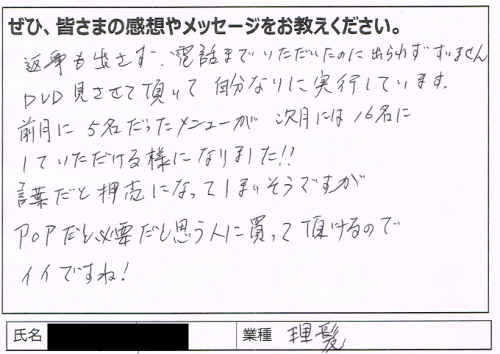 ぜひ、皆さまの感想やメッセージをお教えください。
返事も出さず、電話までいただいたのに出られずすいません
DVD見させて頂いて自分なりに実行しています。
前月に5名だったメニューが次月には16名に
していただける様になりました!!
言葉だと押売になってしまいそうですが
POPだと必要だと思う人に買って頂けるので
イイですね!
氏名 業種 理髪